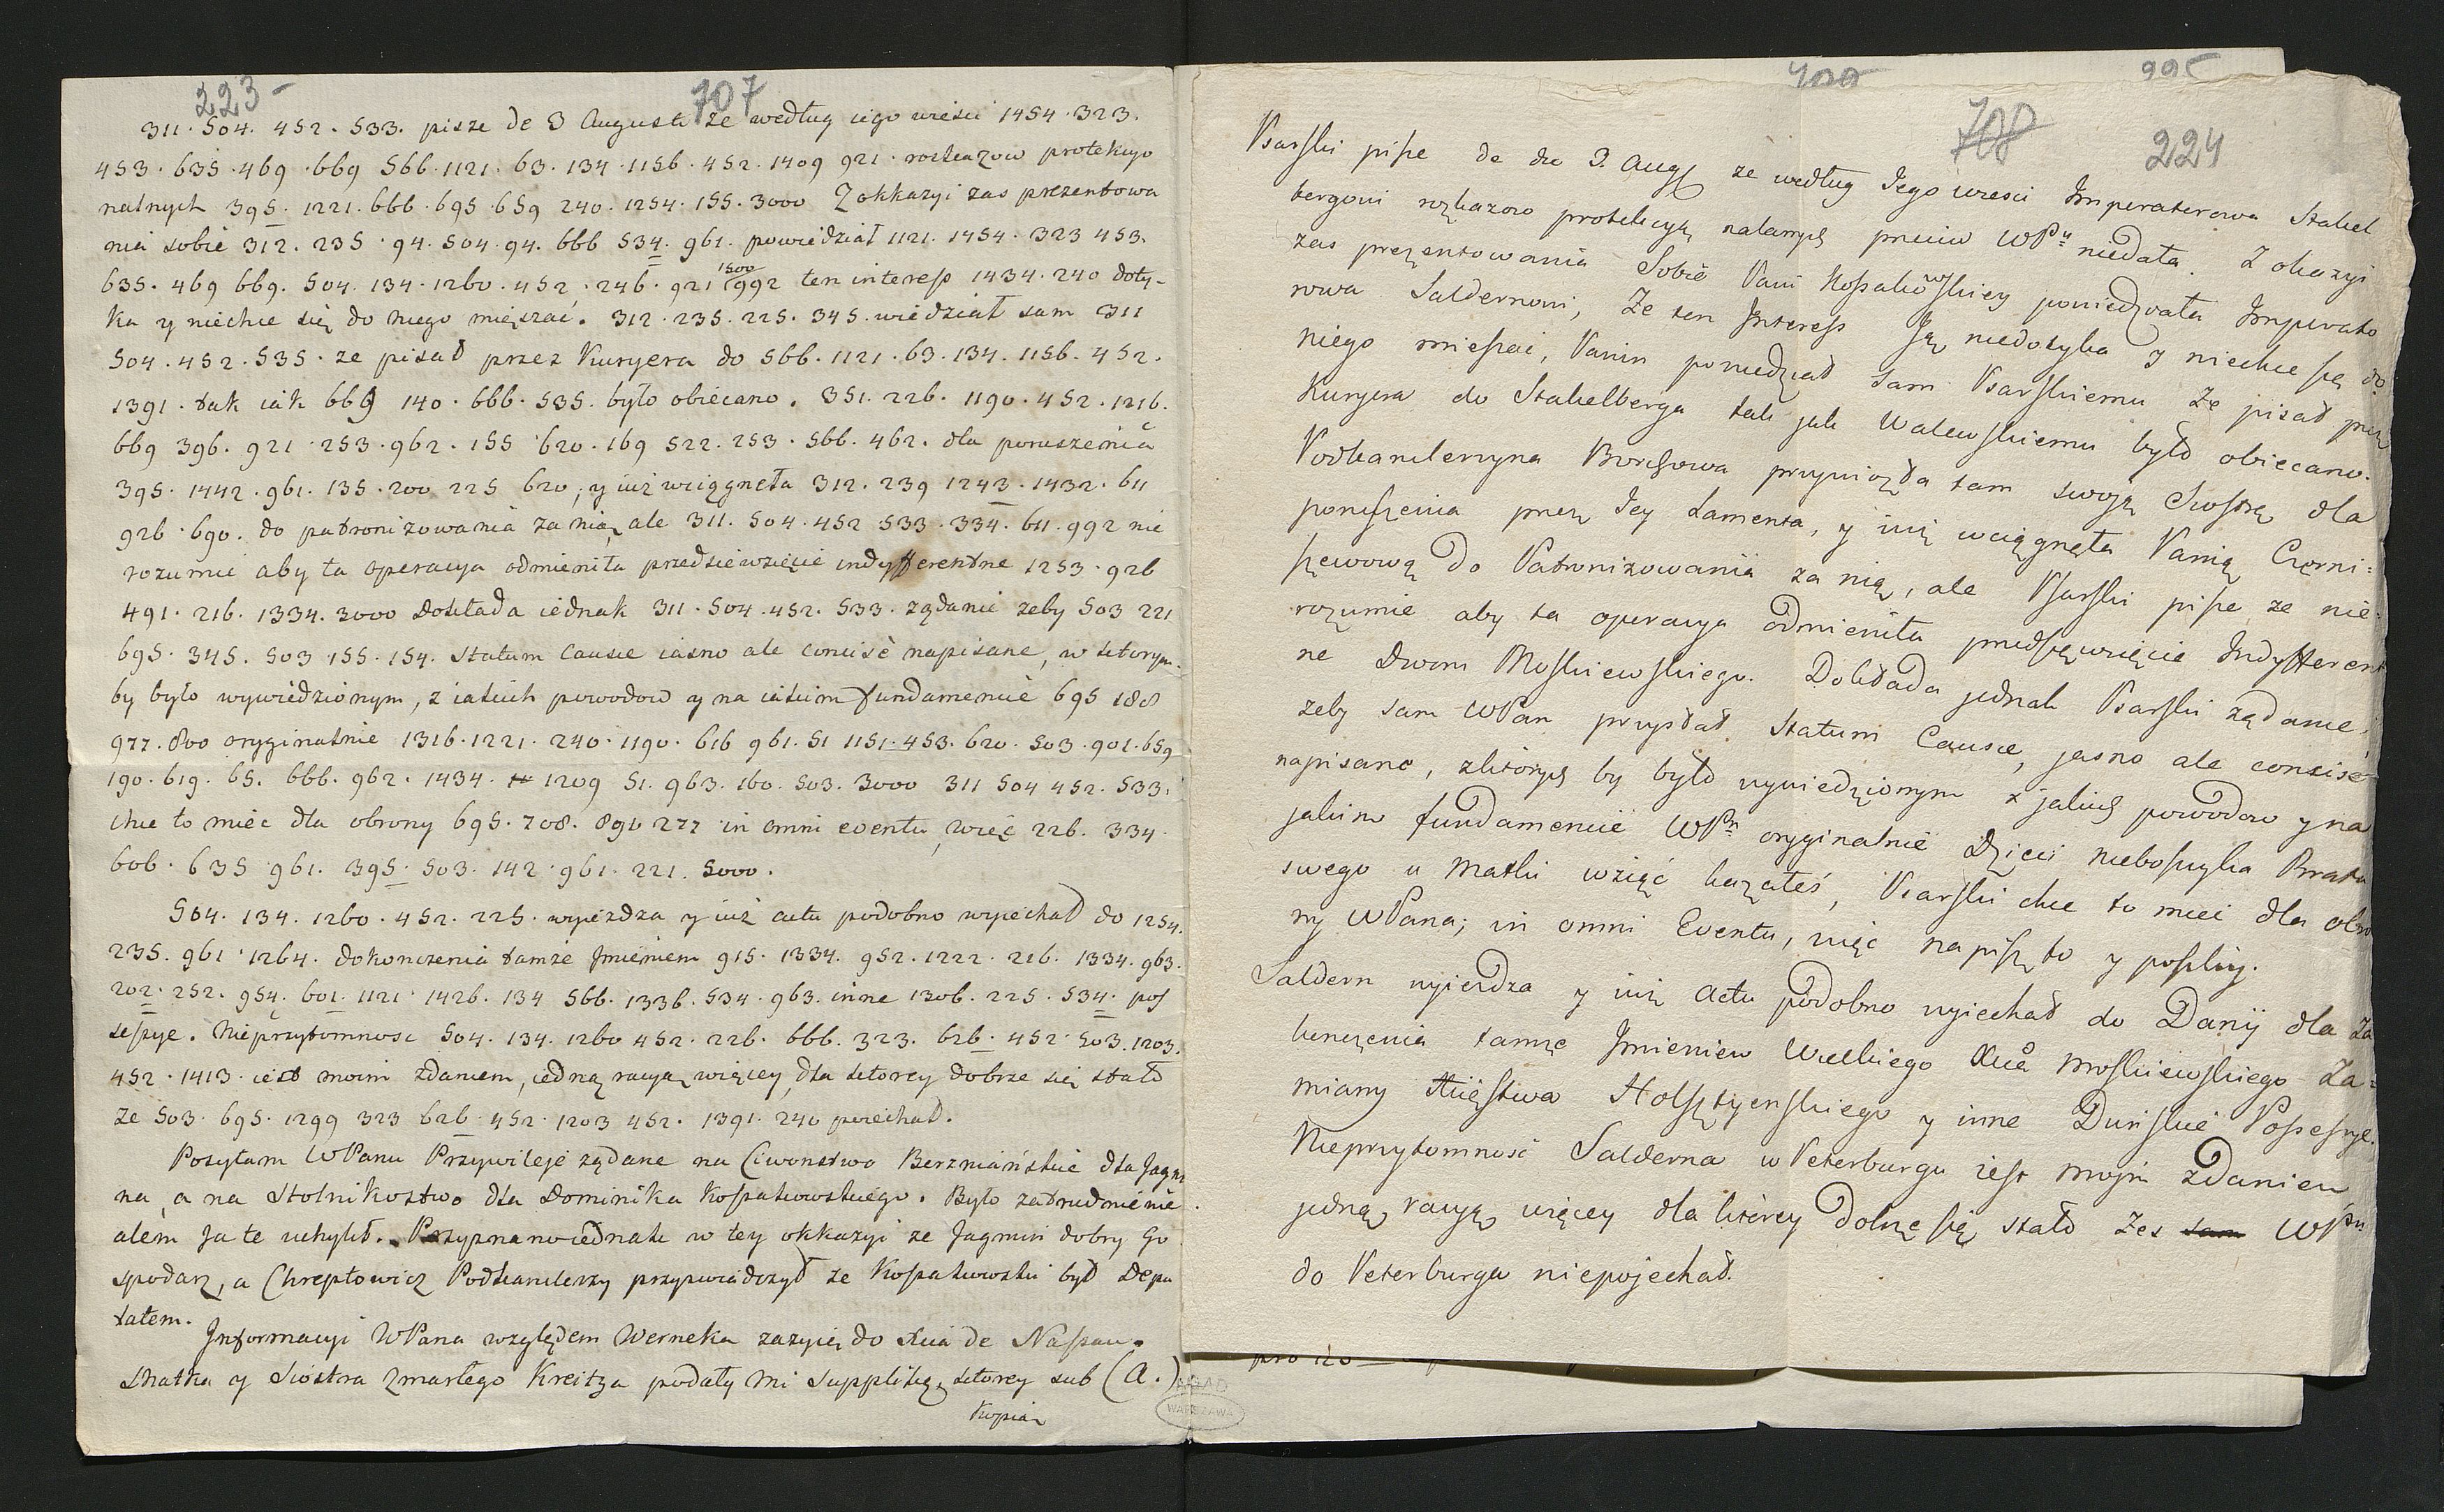 223
707
311. 504. 452. 533. pisze de 3 Augusti ze według iego wiesci 1454. 323.
453. 635. 469. 669 566. 1121. 63. 134. 1156. 452. 1409 921. roskazow protekcyo
nalnych 395. 1221. 666. 695. 659 240. 1254. 155. 3000 Z okkazyi zas prezentowa
nia sobie 312. 235. 94. 504. 94. 666 534. 961. powiedział 1121. 1454. 323 453.
1500
635. 469 669. 504. 134. 1260. 452. 246. 921 992 ten interess 1434. 240 doty-
ka y niechce się do niego mięszać. 312. 235. 225. 345. wiedział sam 311
504. 452. 535. ze pisał przez Kuryera do 566. 1121. 63. 134. 1156. 452.
1391. tak iak 669 140. 666. 535. było obiecano. 351. 226. 1190. 452. 1216.
669 396. 921. 253. 962. 155 620. 169 522. 253. 566. 462. dla poruszenia
395. 1442. 961. 135. 200 225 620, y iuż wciągnęła 312. 239 1243. 1432. 611
926. 690. do patronizowania za nią, ale 311. 504. 452 533. 334. 611. 992 nie
rozumie aby ta operacya odmieniła przedsięwzięcie indyfferentne 1253. 926
491. 216. 1334. 3000 Dokłada iednak 311. 504. 452. 533. żądanie zeby 503 221
695. 345. 503. 155. 154. Statum causæ iasno ale concisè napisane, w ktorym
by było wywiedzionym, z iakich powodow y na iakim fundamencie 695 188
977. 800 oryginalnie 1316. 1221. 240. 1190. 616 961. 51 1151. 453. 620. 503. 901. 659
190. 619. 65. 666. 962. 1434. 1209 51. 963. 160. 503. 3000 311 504 452. 533.
chce to mieć dla obrony 695. 708. 890 277 in omni eventu, więc 226. 334.
606. 635 961. 395. 503. 142. 961. 221. 5000.
504. 134. 1260. 452. 225. wyieżdza y iuż actu podobno wyiechał do 1254.
235. 961. 1264. dokonczenia tamże Jmieniem 915. 1334. 952. 1222. 216. 1334. 963.
202. 252. 954. 601. 1121. 1426. 134 566. 1336. 534. 963. inne 1306. 225. 534. pos
sessye. Nieprzytomnosc 504. 134. 1260 452. 226. 666. 323. 626. 452. 503. 1203.
452. 1413. iest moim zdaniem, iedną racyą więcey, dla ktorey dobrze się stało
ze 503. 695. 1299 323 626. 452. 1203 452. 1391. 240 poiechał.
Posyłam WPanu Przywileje żądane na Ciwonstwo Berzniańskie dla Jagmi
na, a na Stolnikostwo dla Dominika Kossakowskiego. Było zatrudnienie
alem Ja te uchylił. Przyznano iednak w tey okkazyi ze Jagmin dobry Go
spodarz, a Chreptowicz Podkanclerzy przyswiadczył ze Kossakowski był Depu
tatem.
Informacyi WPana względem Werneka zażyię do Xcia de Nassau.
Matka y Siostra zmarłego Kreitza podały mi supplikę, ktorey sub (A.)
Kopia
995
708
224
Psarski pisze de 3. Aug ze według Jego wiesci Imperatorowa Stakel
bergowi rozkazow protekcyą nalnych przeciw WPu niedała. Z okazyi
zas prezentowania Sobie Pani Kossakowskiey powiedziała Imperato
rowa Saldernowi, Ze ten Interess Ją niedotyka y niechce się do
niego mieszać, Panin powiedział sam Psarskiemu Ze pisał przez
Kuryera do Stakelberga tak jak Walewskiemu było obiecano.
Podkanclerzyna Borchowa przywiozła tam swoją Siostrę dla
poruszenia przez Jey Lamenta, y iuż wciągnęła Panią Czerni=
szewową do Patronizowania za nią, ale Psarski pisze ze nie
rozumie aby ta operacya odmieniła przedsięwzięcie Indyfferent
ne Dworu Moskiewskiego. Dokłada jednak Psarski żądanie,
zeby sam WPan przysłał Statum Causæ, jasno ale concise
napisane, z ktorych by było wywiedzionym z jakich powodow y na
jakim fundamencie WPn oryginalnie Dzieci nieboszczyka Brata
swego u Matki wziąć kazałeś, Psarski chce to mieć dla obro
ny WPana; in omni Eventu, więc napiszę to y poszliy.
Saldern wyieżdza y iuż actu podobno wyiechał do Danij dla Za
kończenia tamże Jmieniem Wielkiego Xcia Moskiewskiego Za=
miany Xięstwa Holsztyenskiego y inne Duńskie Possessye.
Nieprzytomność Salderna w Peterburgu iest moim Zdaniem
jedną racyą więcey dla ktorey dobrze się stało Zes sam WPn
do Peterburga niepojechał.
AGAD
WARSZAWA